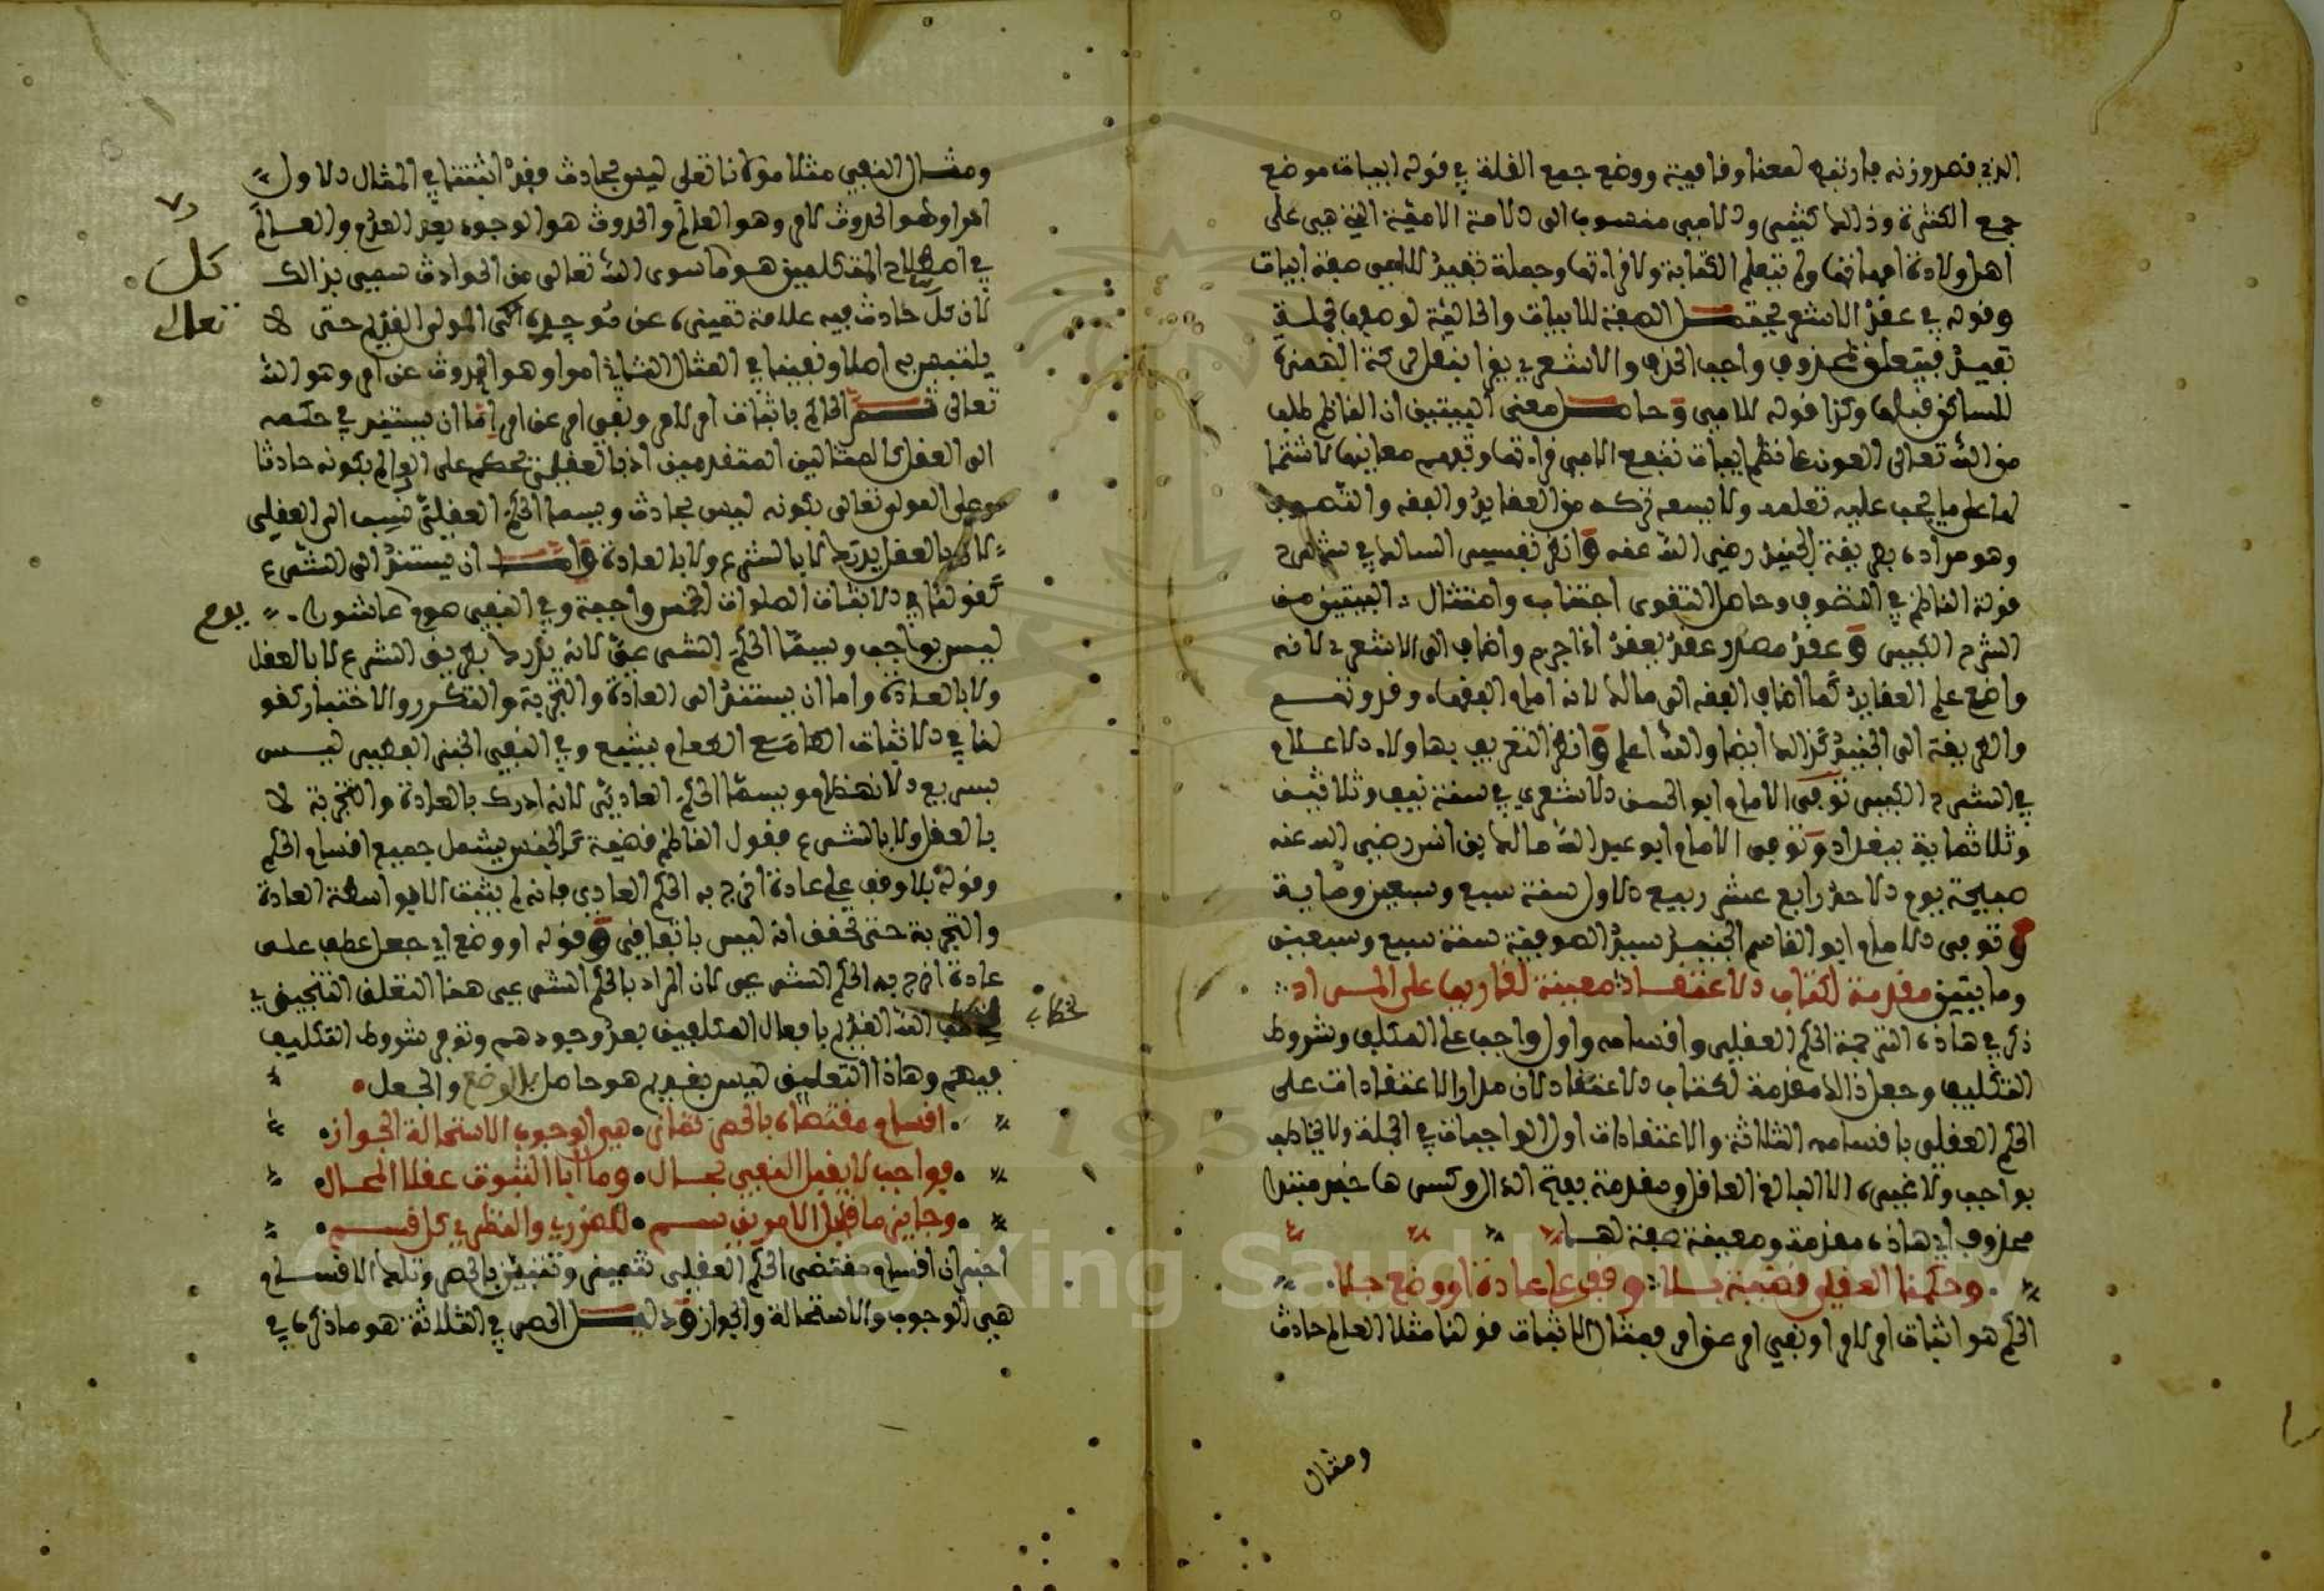 الذي قصد وزنه فارتفع لمعناه وقافيته ووضع جمع القلة في قوله ابيات موضع
جمع الكثرة وذالك كثير والامي منسوب الى الامة الامية التي هي على
اصل ولادة امهاتها ولم تتعلم الكتابة ولا قراءتها وجملة تفيد للامي صفة ابيات
وقوله في عقد الاشعري يحتمل الصفة للابيات والحالية لوصفها بجملة
تفيد فيتعلق بمحذوف واجب الحذف والاشعري يقرا بنقل حركة الهمزة
للساكن قبلها وكذا قوله للامي وحاصل معنى البيتين ان الناظم طلب
من الله تعالى العون على نظم ابيات تنفع الامي قراءتها وتفهم معانيها لاشتمالها
على ما يجب عليه تعلمه ولا يسعه تركه من العقايد والفقه والتصوف
وهو مراده بطريقة الجنيد رضي الله عنه وانظر تفسير السالك في شرح
قولة الناظم في التصوف وحاصل التقوى اجتناب وامتثال البيتين من
الشرح الكبير وعقد مصدر عقد يعقد اذا جزم واضاف الى الاشعري لانه
واضع علم العقايد كما اضاف الفقه الى مالك لانه امام الفقهاء وقد وتنسب
والطريقة الى الجنيد كذالك ايضا والله اعلم وانظر التعريف بهاولاء الاعلام
في الشرح الكبير توفي الامام ابو الحسن الاشعري في سنة نيف وثلاثين
وثلاثماية ببغداد وتوفي الامام ابو عبد الله مالك بن انس رضي الله عنه
صبيحة يوم الاحد رابع عشر ربيع الاول سنة سبع وسبعين وماية
وتوفي الامام ابو القاسم الجنيد سيد الصوفية سنة سبع وسبعين
ومايتين مقدمة لكتاب الاعتقاد معينة لقاريها على المراد
ذكر في هاذه الترجمة الحكم العقلي واقسامه واول واجب على المكلف وشروط
التكليف وجعل ذالك مقدمة لكتاب الاعتقاد لان مدار الاعتقادات على
الحكم العقلي باقسامه الثلاثة والاعتقادات اول الواجبات في الجملة ولا يخاطب
بواجب ولا غيره الا البالغ العاقل ومقدمة بفتح الدال وكسرها خبر مبتدا
محذوف اي هاذه مقدمة ومعينة صفة لها
وحكمنا العقلي قضية بلا وقف على عادة او وضع جلا
الحكم هو اثبات امر لامر او نفي امر عن امر فمثال الاثبات قولنا مثلا العالم حادث
ومثال
ومثال النفي مثلا مولانا تعلى ليس بحادث فقد اثبتنا في المثال الاول
امرا وهو الحدوث لامر وهو العالم والحدوث هو الوجود بعد العدم والعالم
في اصطلاح المتكلمين هو ما سوى الله تعالى من الحوادث سمي بذالك
لان كل حادث فيه علامة تميزه عن موجده المولى القديم حتى لا
يلتبس به اصلا ونفينا في المثال الثاني امرا وهو الحدوث عن امر وهو الله
تعالى ثم الحاكم باثبات امر لامر ونفي امر عن امر اما ان يستند في حكمه
الى العقل كالمثالين المتقدمين اذ بالعقل نحكم على العالم بكونه حادثا
وعلى المولى تعالى بكونه ليس بحادث ويسما الحكم العقلي نسب الى العقل
لان بالعقل يدرك لا بالشرع ولا بالعادة واما ان يستند الى الشرع
كقولنا في الاثبات الصلوات الخمس واجبة وفي النفي صوم عاشورا
يوم
ليس بواجب ويسما الحكم الشرعي لانه يدرك بطريق الشرع لا بالعقل
ولا بالعادة واما ان يستند الى العادة والتجربة والتكرر والاختبار كقو
لنا في الاثبات الطعام يشبع وفي النفي الخبز الفطير ليس
بسريع الانهضام ويسما الحكم العادي لانه ادرك بالعادة والتجربة لا
بالعقل ولا بالشرع فقول الناظم قضية كالجنس يشمل جميع اقسام الحكم
وقوله بلا وقف على عادة اخرج به الحكم العادي فانه لم يثبت الا بواسطة العادة
والتجربة حتى تحقق انه ليس باتفاقي وقوله او وضع اي جعل عطف على
عادة اخرج به الحكم الشرعي لان المراد بالحكم الشرعي هنا التعلق التنجيزي
خطاب
الله القديم بافعال المكلفين بعد وجودهم وتوفر شروط التكليف
فيهم وهاذا التعلق ليس بقديم هو حاصل بالوضع والجعل
اقسام مقتضاه بالحصر تماز هي الوجوب الاستحالة الجواز
فواجب لا يقبل النفي بحال وما ابا الثبوت عقلا المحال
وجايز ما قبل الامرين سم للضروري والنظري كل قسم
اخبر ان اقسام مقتضى الحكم العقلي تتميز وتتبين بالحصر وتلك الاقسام
هي الوجوب والاستحالة والجواز ودليل الحصر في الثلاثة هو ما ذكره في